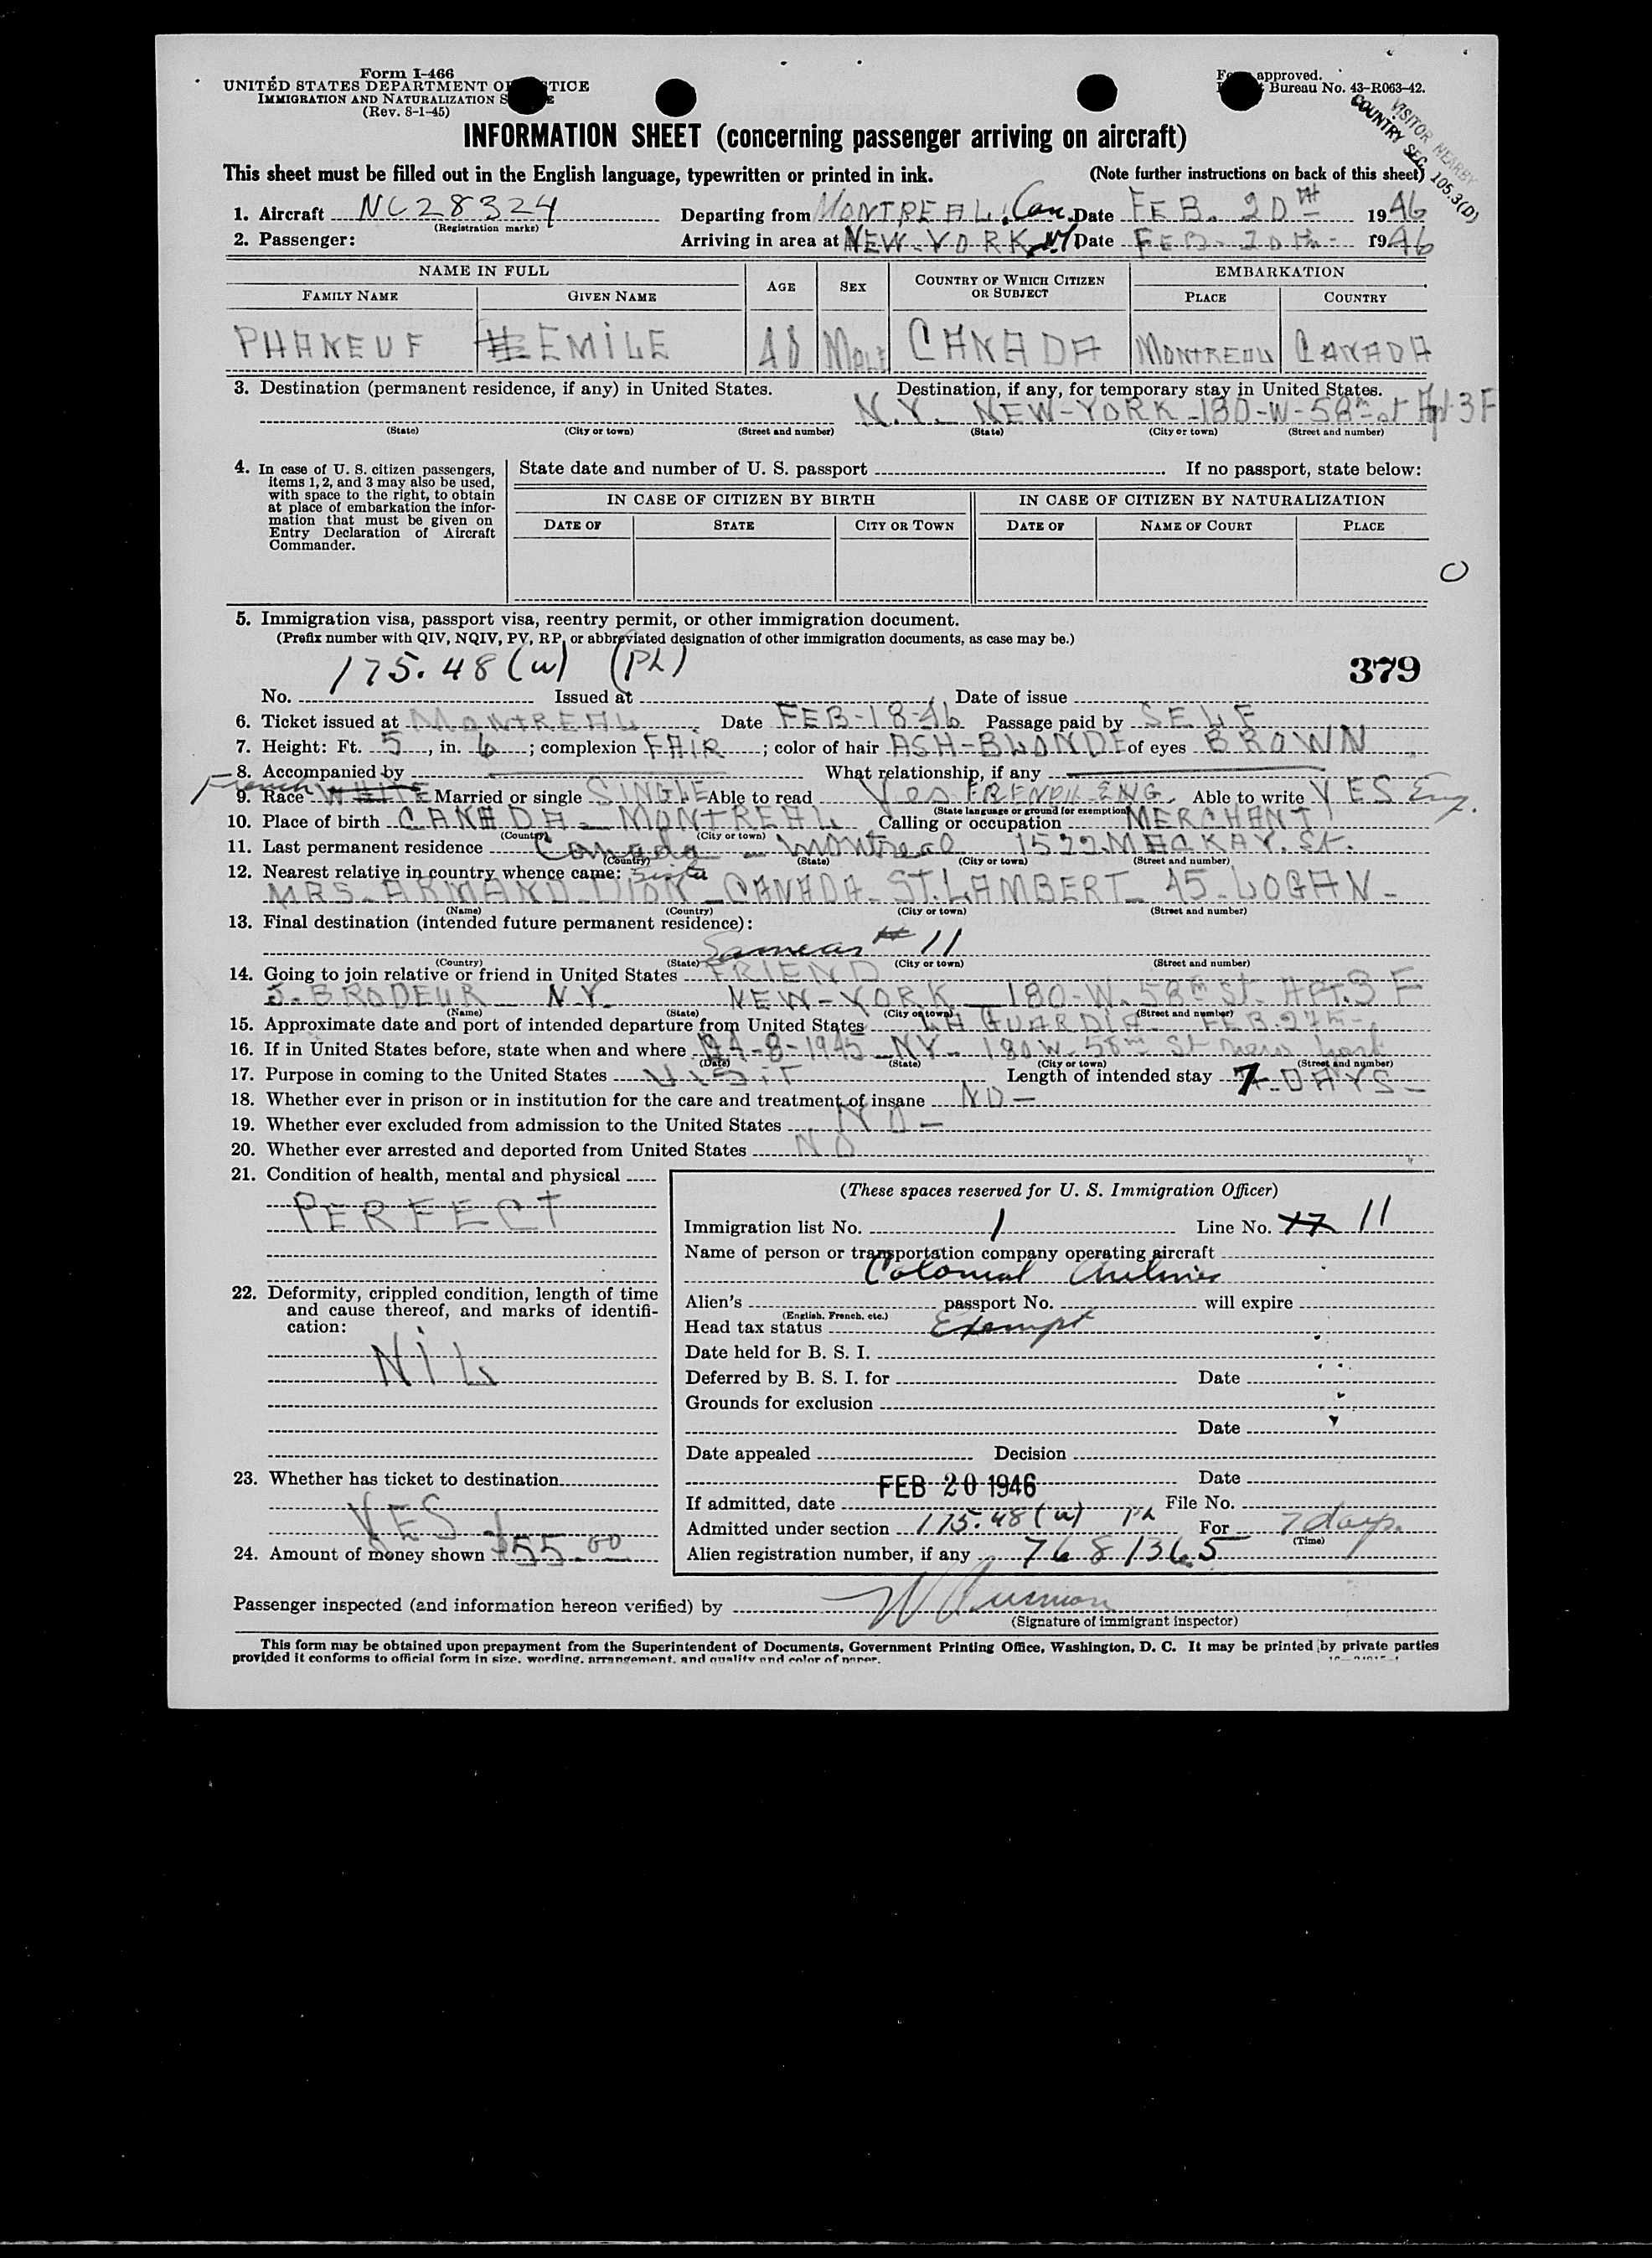 Form I-466
UNITED STATES DEPARTMENT OF JUSTICE
IMMIGRATION AND NATURALIZATION
(Rev. 8-1-45)
approved.
Bureau No. 43-R063-42.
VISITOR NEARBY
COUNTRY SEC. 105.3(D)
INFORMATION SHEET (concerning passenger arriving on aircraft)
This sheet must be filled out in the English language, typewritten or printed in ink.
(Note further instructions on back of this sheet)
1. Aircraft NC28324 Departing from MONTREAL, Can. Date FEB. 20TH 1946
(Registration marks)
2. Passenger: Arriving in area at NEW-YORK NY Date FEB. 20TH 1946
NAME IN FULL AGE SEX COUNTRY OF WHICH CITIZEN OR SUBJECT EMBARKATION
FAMILY NAME GIVEN NAME PLACE COUNTRY
PHANEUF EMILE 40 MALE CANADA MONTREAL CANADA
3. Destination (permanent residence, if any) in United States. Destination, if any, for temporary stay in United States.
N.Y. NEW-YORK-180-W-58th st Apt 3F
(State) (City or town) (Street and number) (State) (City or town) (Street and number)
4. In case of U. S. citizen passengers, items 1, 2, and 3 may also be used, with space to the right, to obtain at place of embarkation the information that must be given on Entry Declaration of Aircraft Commander.
State date and number of U. S. passport If no passport, state below:
IN CASE OF CITIZEN BY BIRTH IN CASE OF CITIZEN BY NATURALIZATION
DATE OF STATE CITY OR TOWN DATE OF NAME OF COURT PLACE
5. Immigration visa, passport visa, reentry permit, or other immigration document.
(Prefix number with QIV, NQIV, PV, RP, or abbreviated designation of other immigration documents, as case may be.)
175.48(w) (PL)
379
No. Issued at Date of issue
6. Ticket issued at MONTREAL Date FEB-18-46 Passage paid by SELF
7. Height: Ft. 5, in. 6; complexion FAIR; color of hair ASH-BLONDE of eyes BROWN
8. Accompanied by What relationship, if any
French
9. Race WHITE Married or single SINGLE Able to read Yes FRENCH-ENG. Able to write YES Eng.
(State language or ground for exemption)
10. Place of birth CANADA - MONTREAL Calling or occupation MERCHANT
(Country) (City or town)
11. Last permanent residence Canada - Montreal 1522 MACKAY. St.
(Country) (State) (City or town) (Street and number)
12. Nearest relative in country whence came: Sister
MRS. ARMAND DION - CANADA - ST. LAMBERT - 45-LOGAN -
(Name) (Country) (City or town) (Street and number)
13. Final destination (intended future permanent residence):
Same as # 11
(Country) (State) (City or town) (Street and number)
14. Going to join relative or friend in United States FRIEND
J. BRODEUR N.Y. NEW-YORK 180-W. 58th St. APT. 3 F
(Name) (State) (City or town) (Street and number)
15. Approximate date and port of intended departure from United States LA GUARDIA FEB. 27th
16. If in United States before, state when and where 8-1945 - NY - 180 W-58th St New York
(Date) (State) (City or town) (Street and number)
17. Purpose in coming to the United States VISIT Length of intended stay 7 DAYS-
18. Whether ever in prison or in institution for the care and treatment of insane NO-
19. Whether ever excluded from admission to the United States NO-
20. Whether ever arrested and deported from United States NO
21. Condition of health, mental and physical
PERFECT
22. Deformity, crippled condition, length of time and cause thereof, and marks of identification:
NIL
23. Whether has ticket to destination
YES
24. Amount of money shown $55.00
(These spaces reserved for U. S. Immigration Officer)
Immigration list No. 1 Line No. 11
Name of person or transportation company operating aircraft
Colonial Airlines
Alien's passport No. will expire
(English, French, etc.)
Head tax status Exempt
Date held for B. S. I.
Deferred by B. S. I. for Date
Grounds for exclusion
Date
Date appealed Decision
FEB 20 1946 Date
If admitted, date File No.
Admitted under section 175.48(w) PL For 7 days.
(Time)
Alien registration number, if any 7681365
Passenger inspected (and information hereon verified) by
(Signature of immigrant inspector)
This form may be obtained upon prepayment from the Superintendent of Documents, Government Printing Office, Washington, D. C. It may be printed by private parties
provided it conforms to official form in size, wording, arrangement, and quality and color of paper.